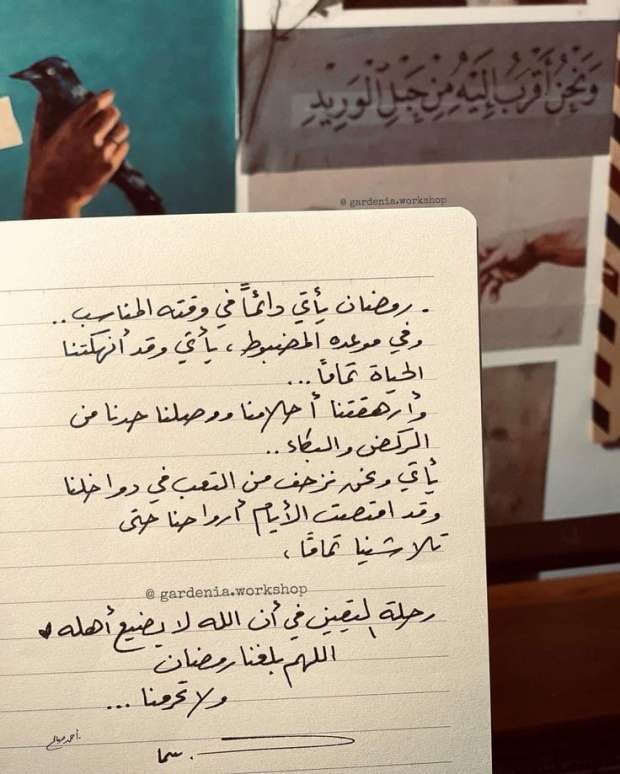 وَنَحْنُ أَقْرَبُ إِلَيْهِ مِنْ حَبْلِ الْوَرِيدِ
@ gardenia.workshop
. رمضان يأتي دائماً في وقته المناسب ..
وفي موعده المضبوط ، يأتي وقد أنهكتنا
الحياة تمامًا ...
وأرهقتنا أحلامنا ووصلنا حدنا من
الركض والبكاء ..
يأتي ونحن نزحف من التعب في دواخلنا
وقد امتصت الأيام أرواحنا حتى
تلاشينا تمامًا ،
@ gardenia.workshop
رحلة ليقين في أن الله لا يضيع أهله ♥
اللهم بلغنا رمضان
ولا تحرمنا ...
سما